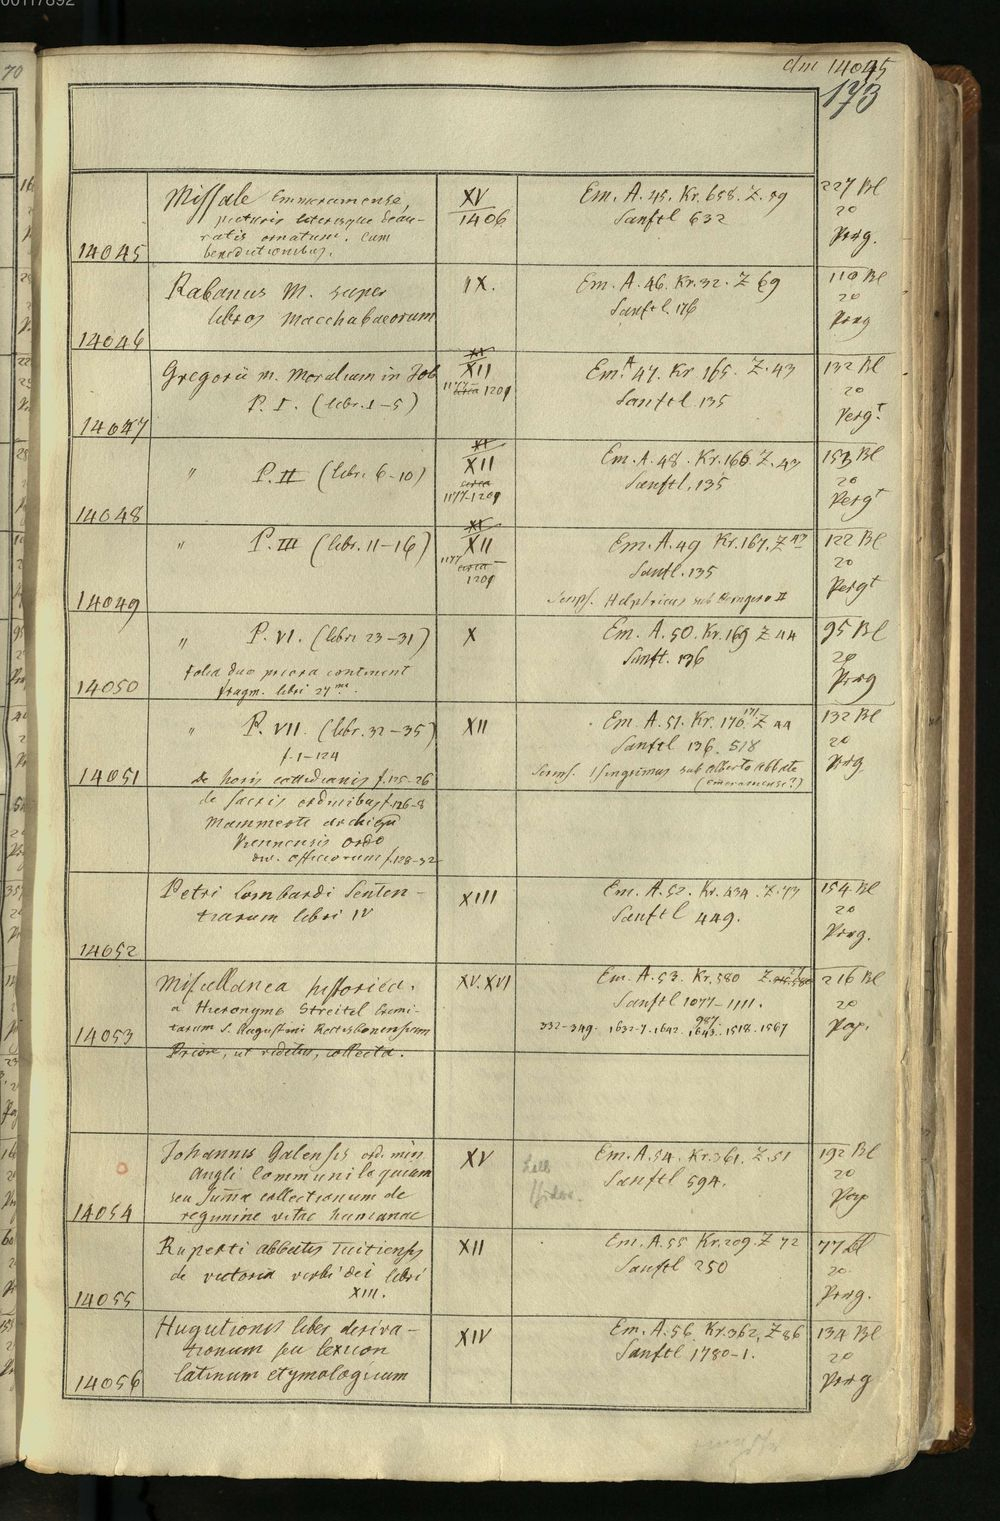 00117892
70
clm 14045
173
14045
Missale Emmeramense,
picturis literisque deau-
ratis ornatum. Cum
benedictionibus.
XV
1406
Em. A. 45. Kr. 658. Z. 59
Sanftl 632
227 Bl
2o
Perg.
14046
Rabanus M. super
libros Macchabaeorum
IX.
Em. A. 46. Kr. 32. Z 69
Sanftl. 176
110 Bl
2o
Perg
14047
Gregorii m. Moralium in Job
P. I. (libr. 1-5)
XI
XII
1177-
circa 1201
Em. A 47. Kr 165. Z. 43
Sanftl. 135
132 Bl
2o
Pergt
14048
" P. II (libr. 6-10)
XI
XII
circa
1177-1201
Em. A. 48. Kr. 166. Z. 43
Sanftl. 135
153 Bl
2o
Pergt
14049
" P. III (libr. 11-16)
XI
XII
1177-
circa
1201
Em. A. 49 Kr. 167. Z 43
Sanftl. 135
Scrips. Helphricus sub Perngero II
122 Bl
2o
Pergt
14050
" P. VI. (libri 23-31)
Folia duo priora continent
fragm. libri 27mi.
X
Em. A. 50. Kr. 169 Z 44
Sanft. 136
95 Bl
2o
Perg
14051
" P. VII. (libr. 32-35)
f. 1-124
de horis cottidianis f. 125-26
de sacris ordinibus f. 126-8
Mammerti archiepi
Viennensis ordo
div. officiorum f. 128-32
XII
Em. A. 51. Kr. 170. 171 Z 44
Sanftl 136. 518
Scrips. Isingrimus sub Alberto abbate
(emeramense?)
132 Bl
2o
Prg
14052
Petri Lombardi Senten-
tiarum libri IV
XIII
Em. A. 52. Kr. 434. Z. 73
Sanftl 449.
154 Bl
2o
Perg.
14053
Miscellanea historica.
a Hieronymo Streitel Eremi-
tarum S. Augustini Ratisbonensium
Priore, ut videtur, collecta.
XV. XVI
Em. A. 53. Kr. 580 Z.
Sanftl 1077-1111.
987.
332-349. 1632-7. 1642. 1643. 1518. 1567
216 Bl
2o
Pap.
14054
Johannis Galensis ord. min
Angli Communiloquium
seu Suma collectionum de
regimine vitae humanae
XV
Em. A. 54. Kr. 361. Z. 51
Sanftl 594.
192 Bl
2o
Pap
14055
Ruperti abbatis Tuitiensis
de victoria verbi dei libri
XIII.
XII
Em. A. 55 Kr. 209. Z 72
Sanftl 250
77 Bl
2o.
Perg.
14056
Hugutionis liber deriva-
tionum seu lexicon
latinum etymologicum
XIV
Em. A. 56. Kr. 362, Z 86
Sanftl 1780-1.
134 Bl
2o
Perg